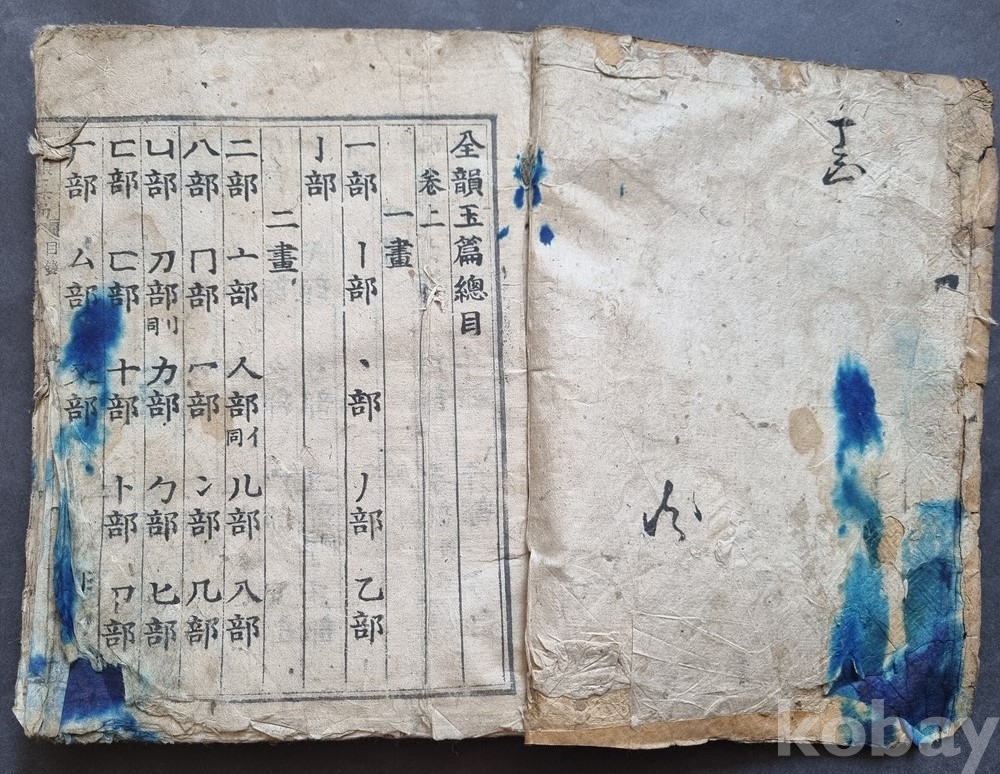 全韻玉篇總目
卷上
一畫
一部 丨部 丶部 丿部 乙部
亅部
二畫
二部 亠部 人部亻同 儿部 入部
八部 冂部 冖部 冫部 几部
凵部 刀部刂同 力部 勹部 匕部
匚部 匸部 十部 卜部 卩部
厂部 厶部 又部
kobay